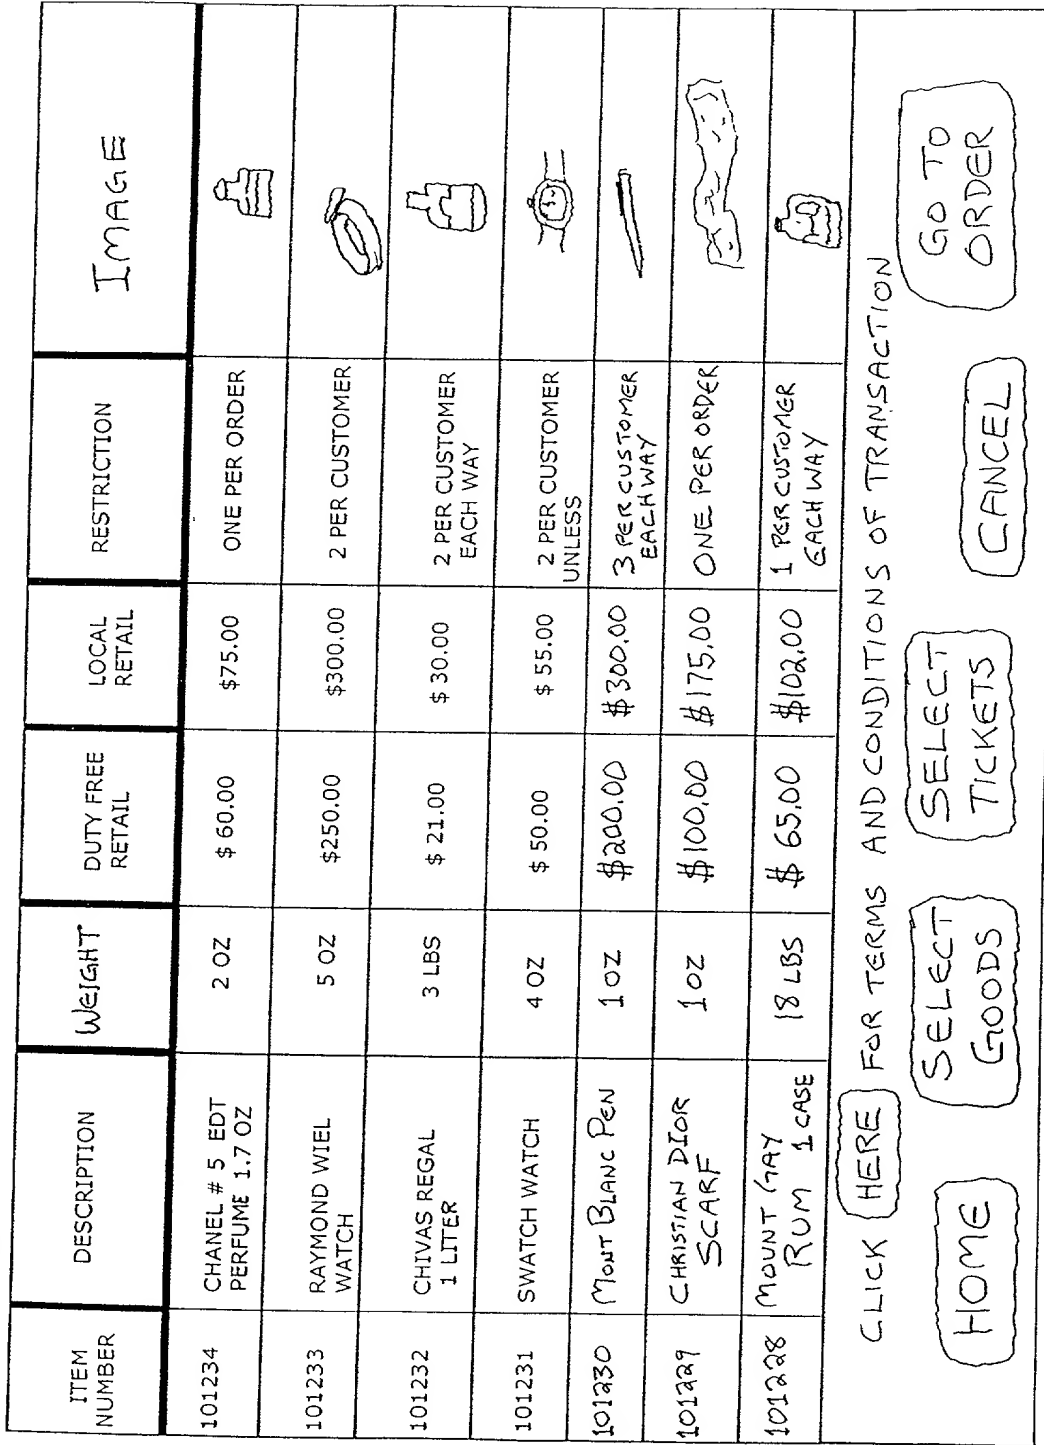 ITEM
NUMBER
DESCRIPTION
WEIGHT
DUTY FREE
RETAIL
LOCAL
RETAIL
RESTRICTION
IMAGE
101234
CHANEL # 5 EDT
PERFUME 1.7 OZ
2 OZ
$ 60.00
$75.00
ONE PER ORDER
101233
RAYMOND WIEL
WATCH
5 OZ
$250.00
$300.00
2 PER CUSTOMER
101232
CHIVAS REGAL
1 LITER
3 LBS
$ 21.00
$ 30.00
2 PER CUSTOMER
EACH WAY
101231
SWATCH WATCH
4 OZ
$ 50.00
$ 55.00
2 PER CUSTOMER
UNLESS
101230
MONT BLANC PEN
1 OZ
$200.00
$300.00
3 PER CUSTOMER
EACH WAY
101229
CHRISTIAN DIOR
SCARF
1 OZ
$100.00
$175.00
ONE PER ORDER
101228
MOUNT GAY
RUM 1 CASE
18 LBS
$ 65.00
$102.00
1 PER CUSTOMER
EACH WAY
CLICK HERE FOR TERMS AND CONDITIONS OF TRANSACTION
HOME
SELECT
GOODS
SELECT
TICKETS
CANCEL
GO TO
ORDER